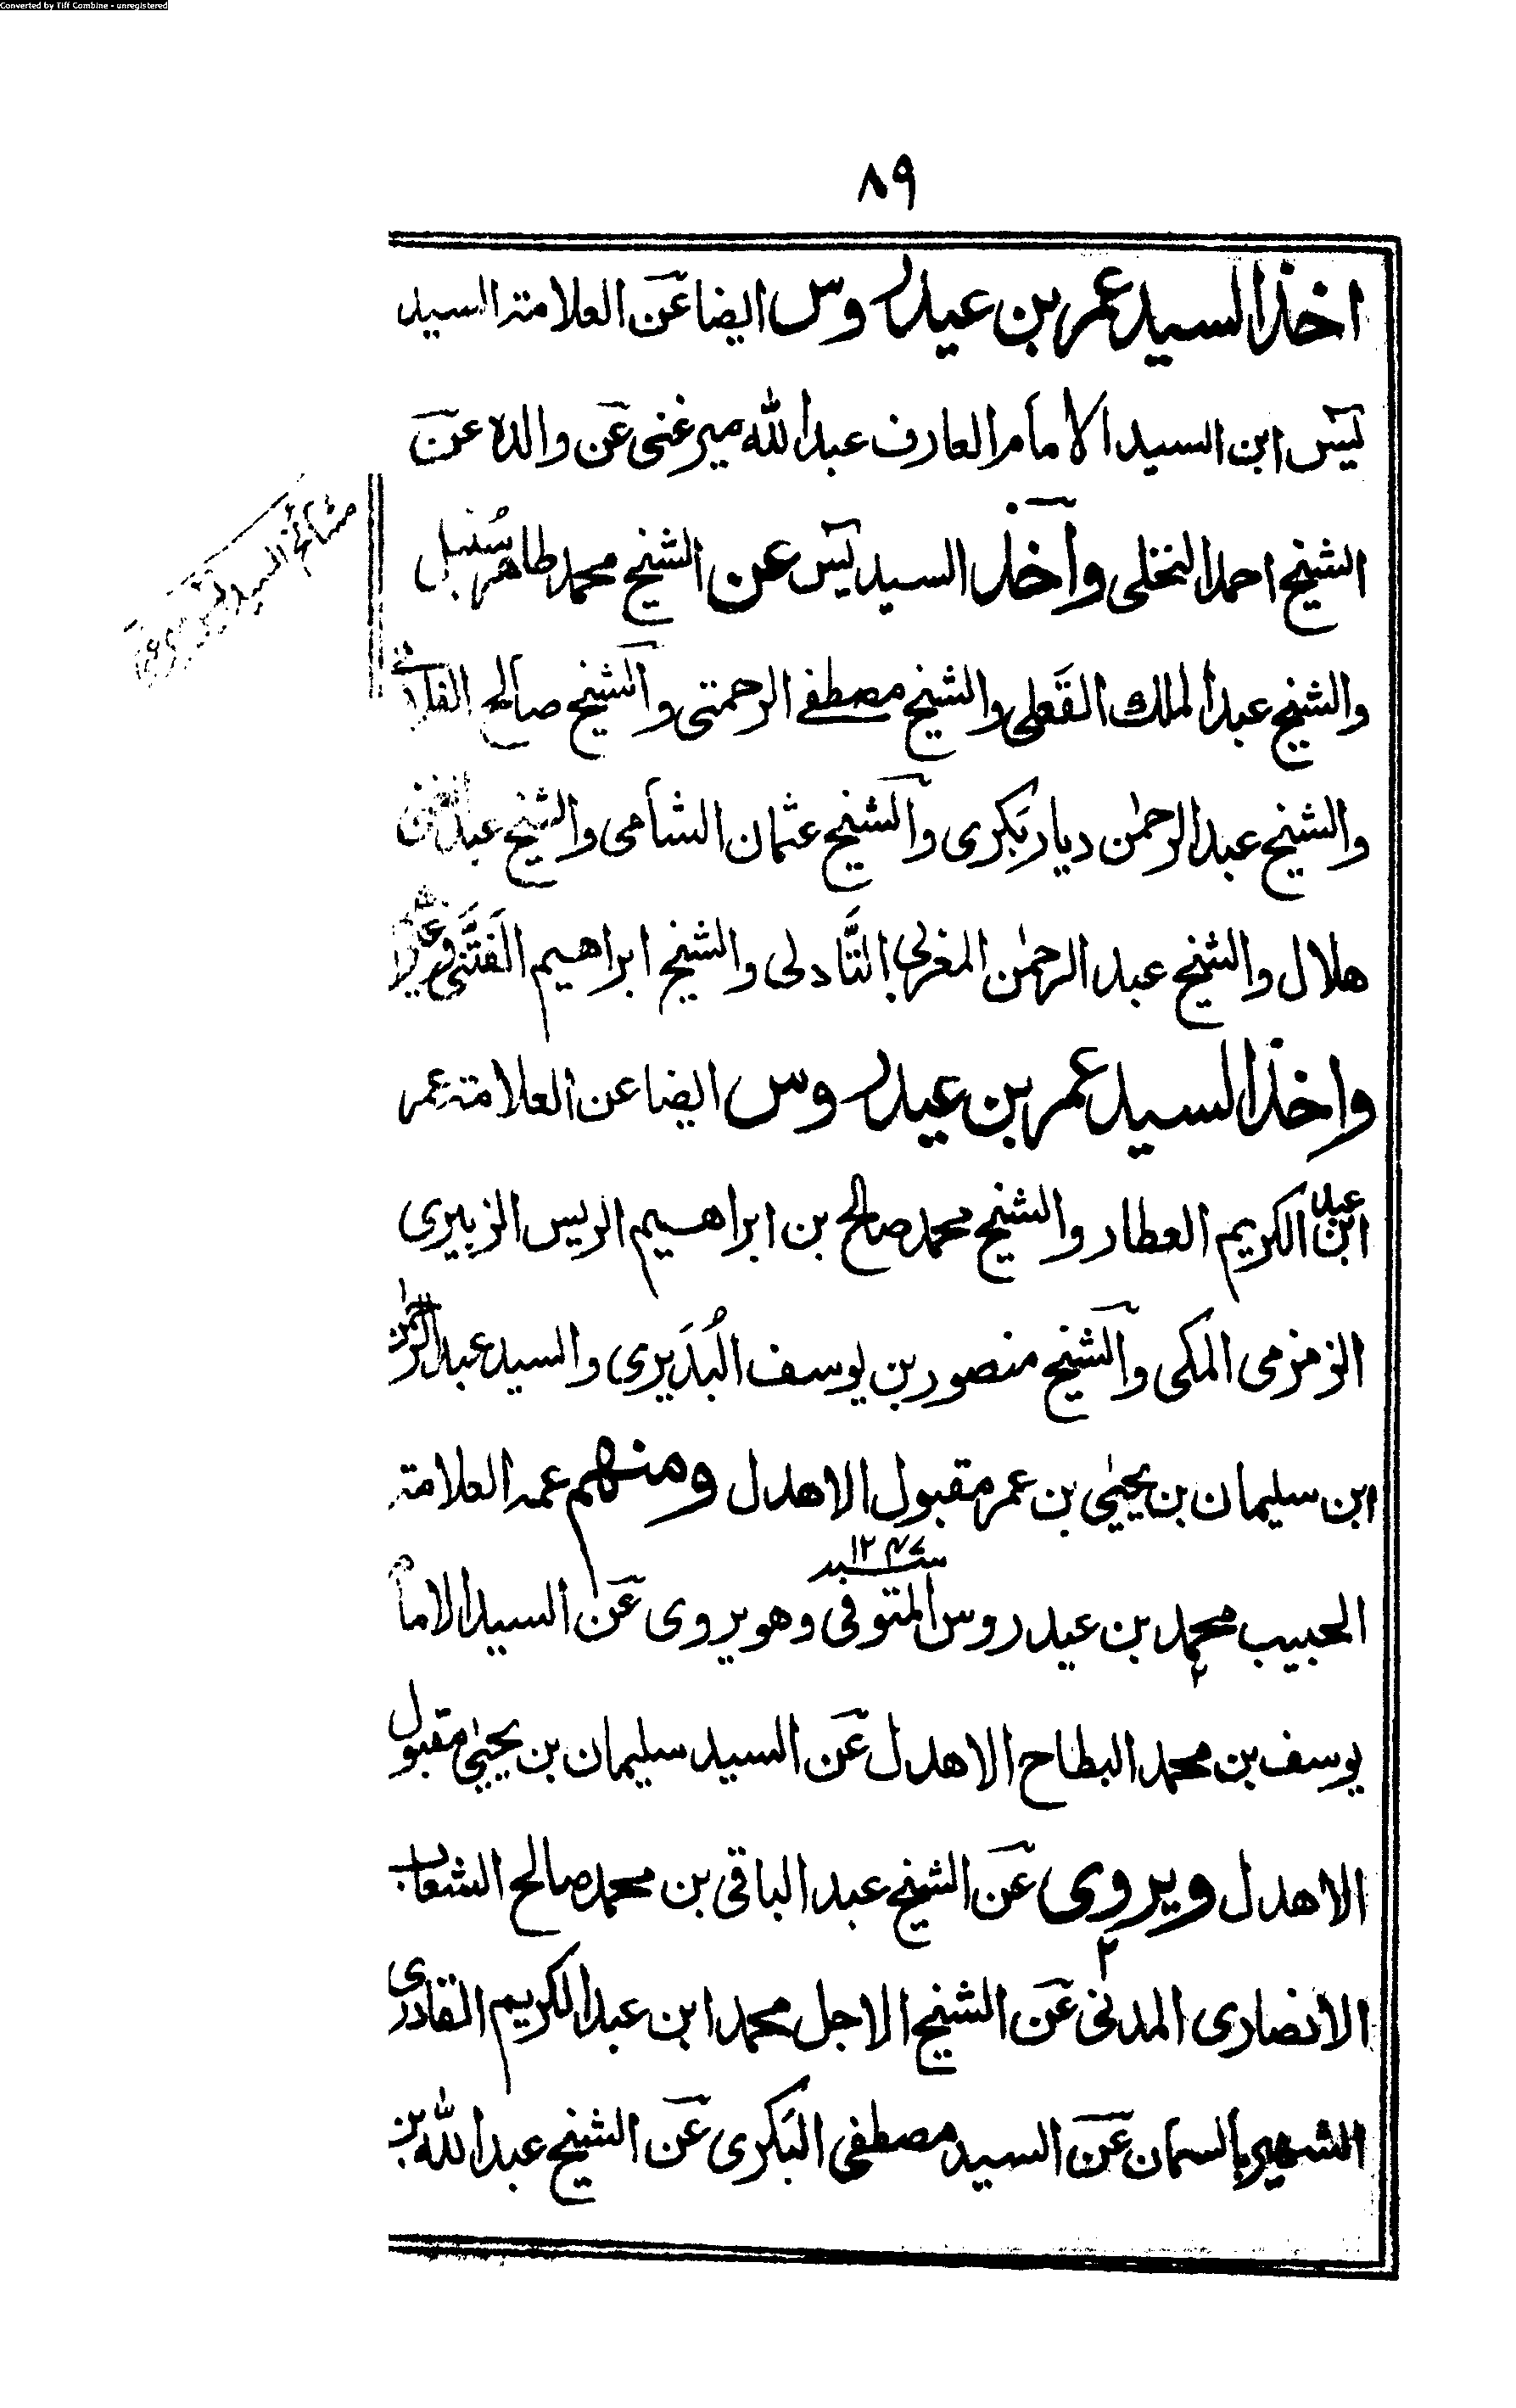 Converted by Tiff Combine - unregistered
٨٩
اخذ السيد عمر بن عيدروس ايضا عن العلامة السيد
يٰسٓ ابن السيد الامام العارف عبد الله ميرغنى عن والده عن
الشيخ احمد النخلى وأخذ السيد يٰسٓ عن الشيخ محمد طاهر سُنبل
والشيخ عبد الملك القَعلى والشيخ مصطفى الرحمتى والشيخ صالح الفلانى
والشيخ عبد الرحمٰن ديار بَكرى والشيخ عثمان الشامى والشيخ
هلال والشيخ عبد الرحمٰن المغربى التَّادلى والشيخ ابراهيم الفَتَّنى
واخذ السيد عمر بن عيدروس ايضا عن العلامة عمر
ابن عبد الكريم العطار والشيخ محمد صالح بن ابراهيم الريس الزبيرى
الزمزمى المكى والشيخ منصور بن يوسف البُدَيرى والسيد عبد الرحمٰن
ابن سليمان بن يحيٰى بن عمر مقبول الاهدل ومنهم عمه العلامة
الحبيب محمد بن عيدروس المتوفى سنة ١٢٤٧ وهو يروى عن السيد الامام
يوسف بن محمد البطاح الاهدل عن السيد سليمان بن يحيٰى مقبول
الاهدل ويروى عن الشيخ عبد الباقى بن محمد صالح الشعاب
الانصارى المدنى عن الشيخ الاجل محمد ابن عبد الكريم القادرى
الشهير بالسمان عن السيد مصطفى البَكرى عن الشيخ عبد الله بن
مشائخ السيد